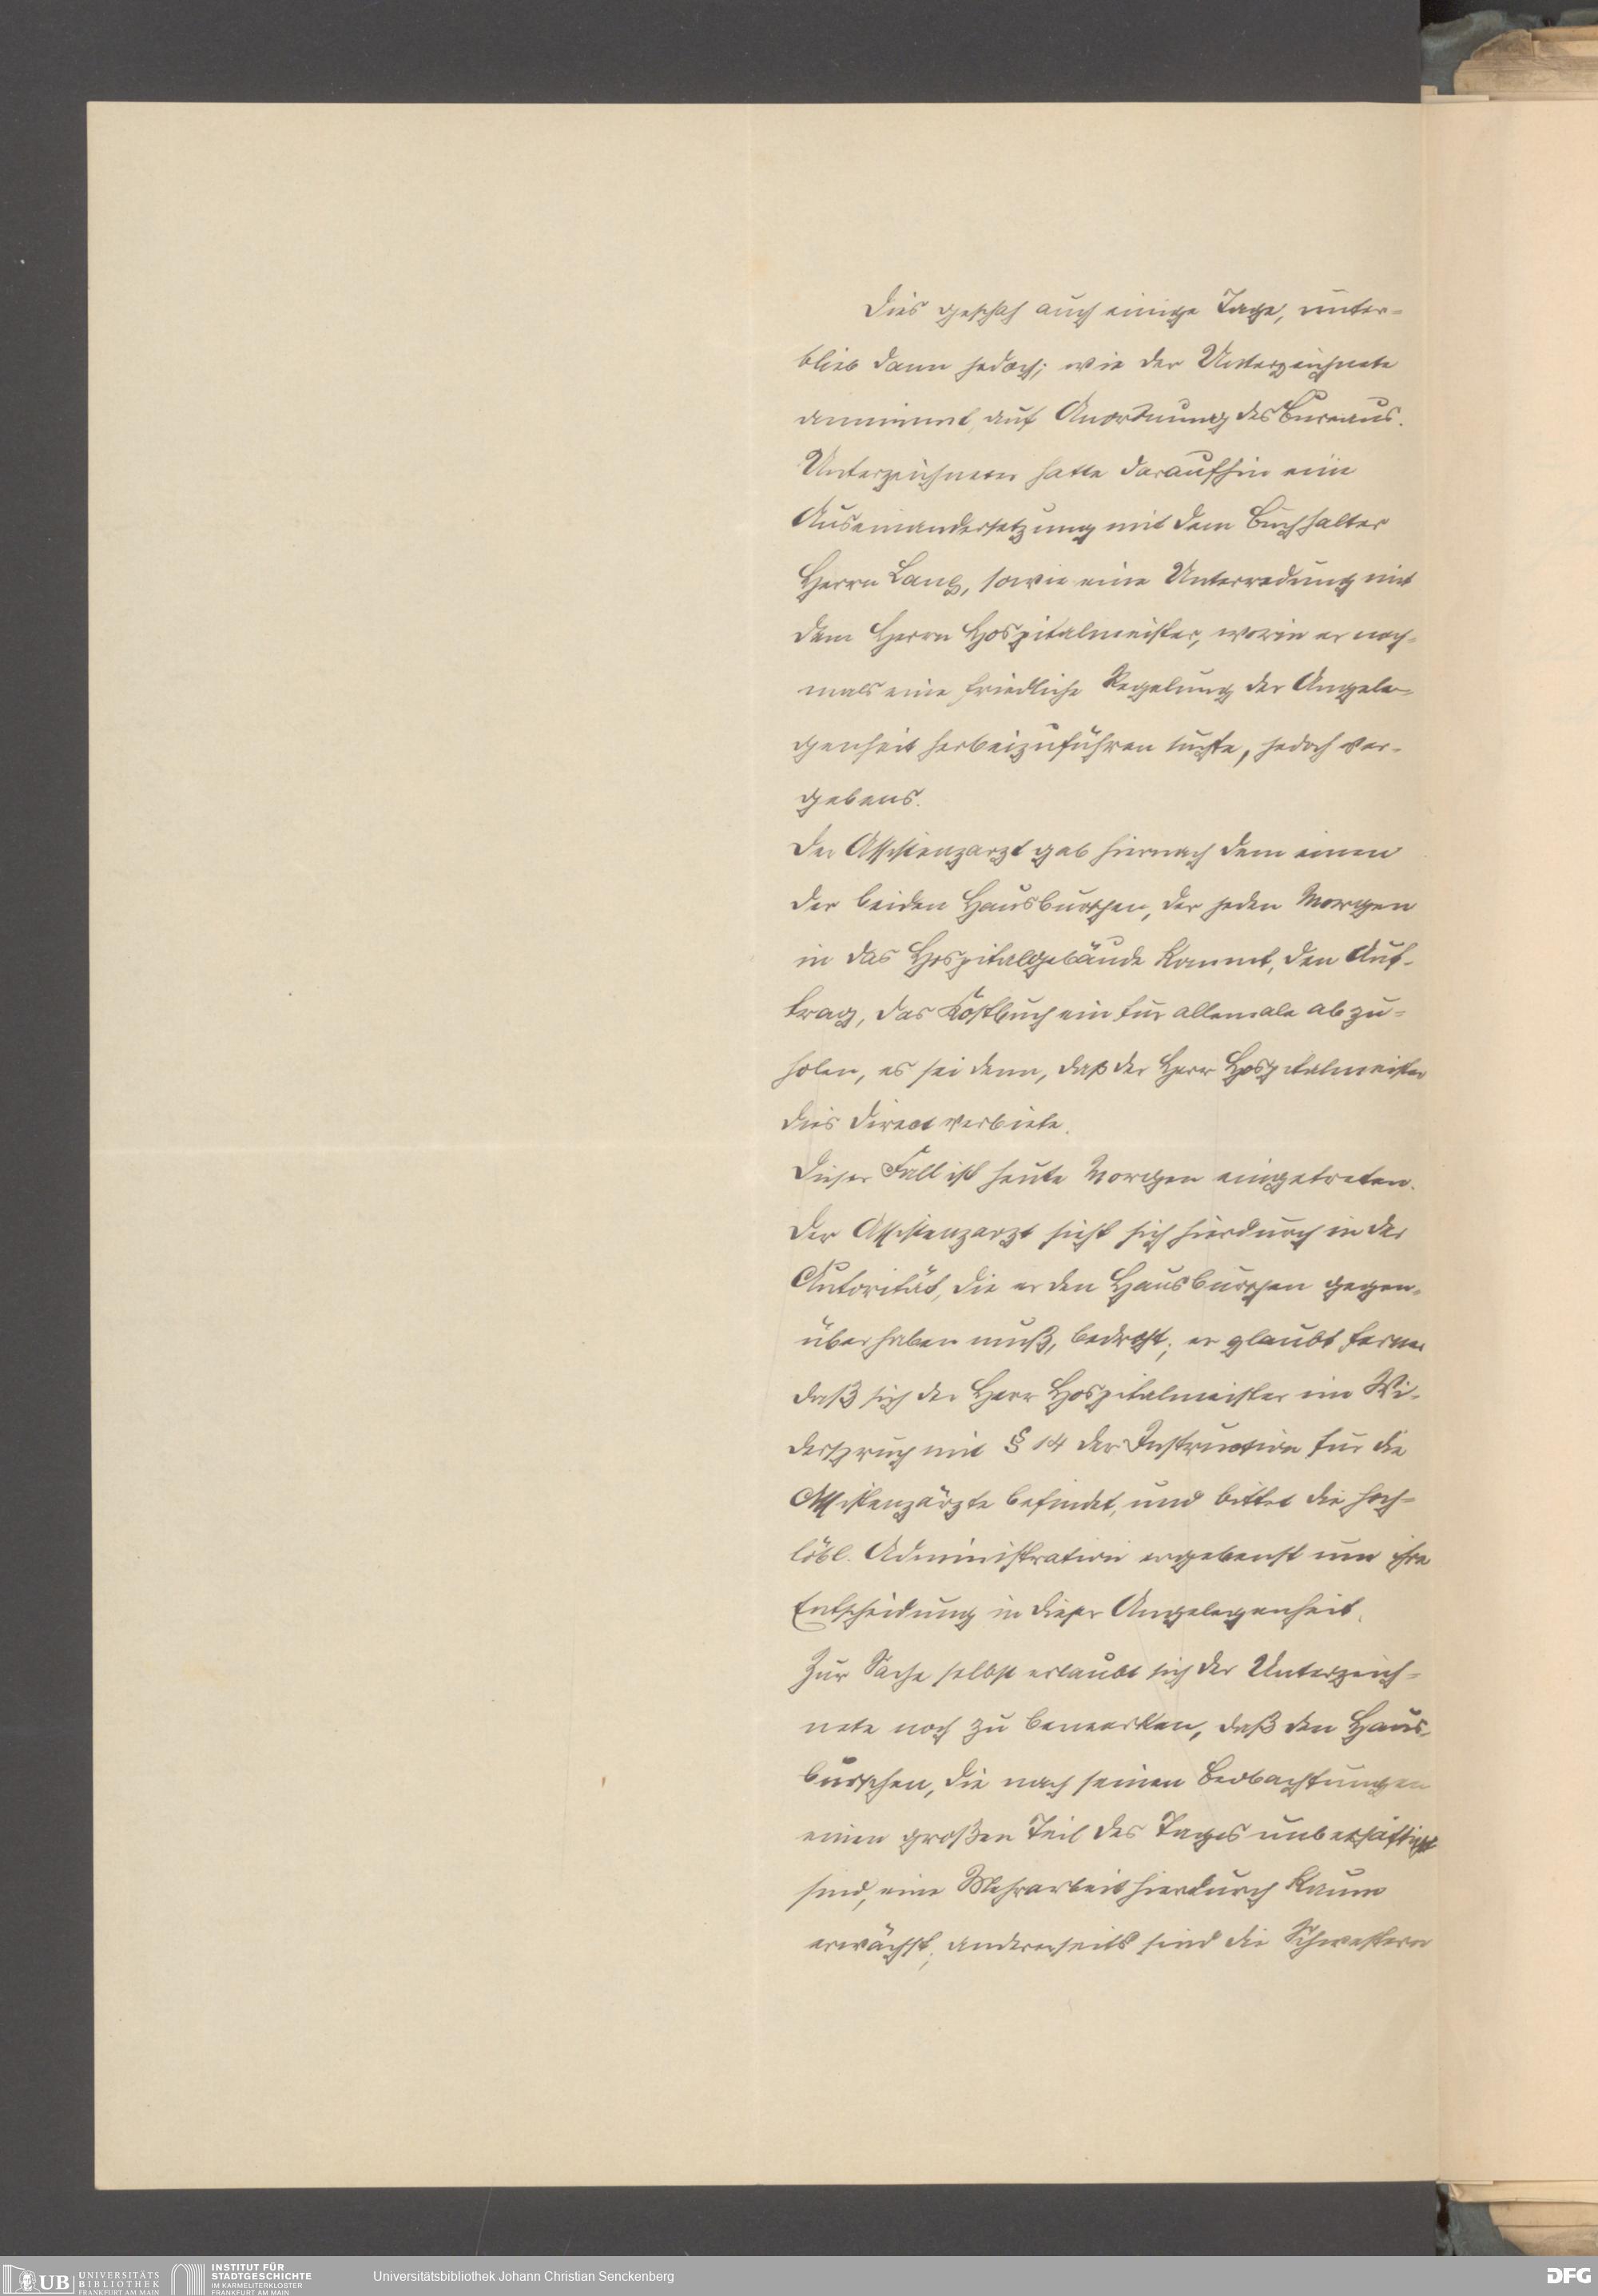 Dies geschah auch einige Tage, unter-
blieb dann jedoch; wie der Unterzeichnete
annimmt, auf Anordnung des Bureaus.
Unterzeichneter hatte daraufhin eine
Auseinandersetzung mit dem Buchhalter
Herrn Lang, sowie eine Unterredung mit
dem Herrn Hospitalmeister, worin er noch-
mals eine friedliche Regelung der Angele-
genheit herbeizuführen suchte, jedoch ver-
gebens.
Der Assistenzarzt gab hiernach dem einen
der beiden Hausburschen, der jeden Morgen
in das Hospitalgebäude kommt, den Auf-
trag, das Kostbuch ein für allemale abzu-
holen, es sei denn, daß der Herr Hospitalmeister
dies direct verbiete.
Dieser Fall ist heute Morgen eingetreten.
Der Assistenzarzt sieht sich hierdurch in der
Autorität, die er den Hausburschen gegen-
über haben muß, bedroht; er glaubt ferner
daß sich der Herr Hospitalmeister im Wi-
derspruch mit § 14 der Instruction für die
Assistenzärzte befindet, und bittet die hoch-
löbl. Administration ergebenst um ihre
Entscheidung in dieser Angelegenheit.
Zur Sache selbst erlaubt sich der Unterzeich-
nete noch zu bemerken, daß den Haus-
burschen, die nach seinen Beobachtungen
einen großen Teil des Tages unbeschäftigt
sind, eine Mehrarbeit hierdurch kaum
erwächst; andererseits sind die Schwestern
UB UNIVERSITÄTS
BIBLIOTHEK
FRANKFURT AM MAIN
INSTITUT FÜR
STADTGESCHICHTE
IM KARMELITERKLOSTER
FRANKFURT AM MAIN
Universitätsbibliothek Johann Christian Senckenberg
DFG